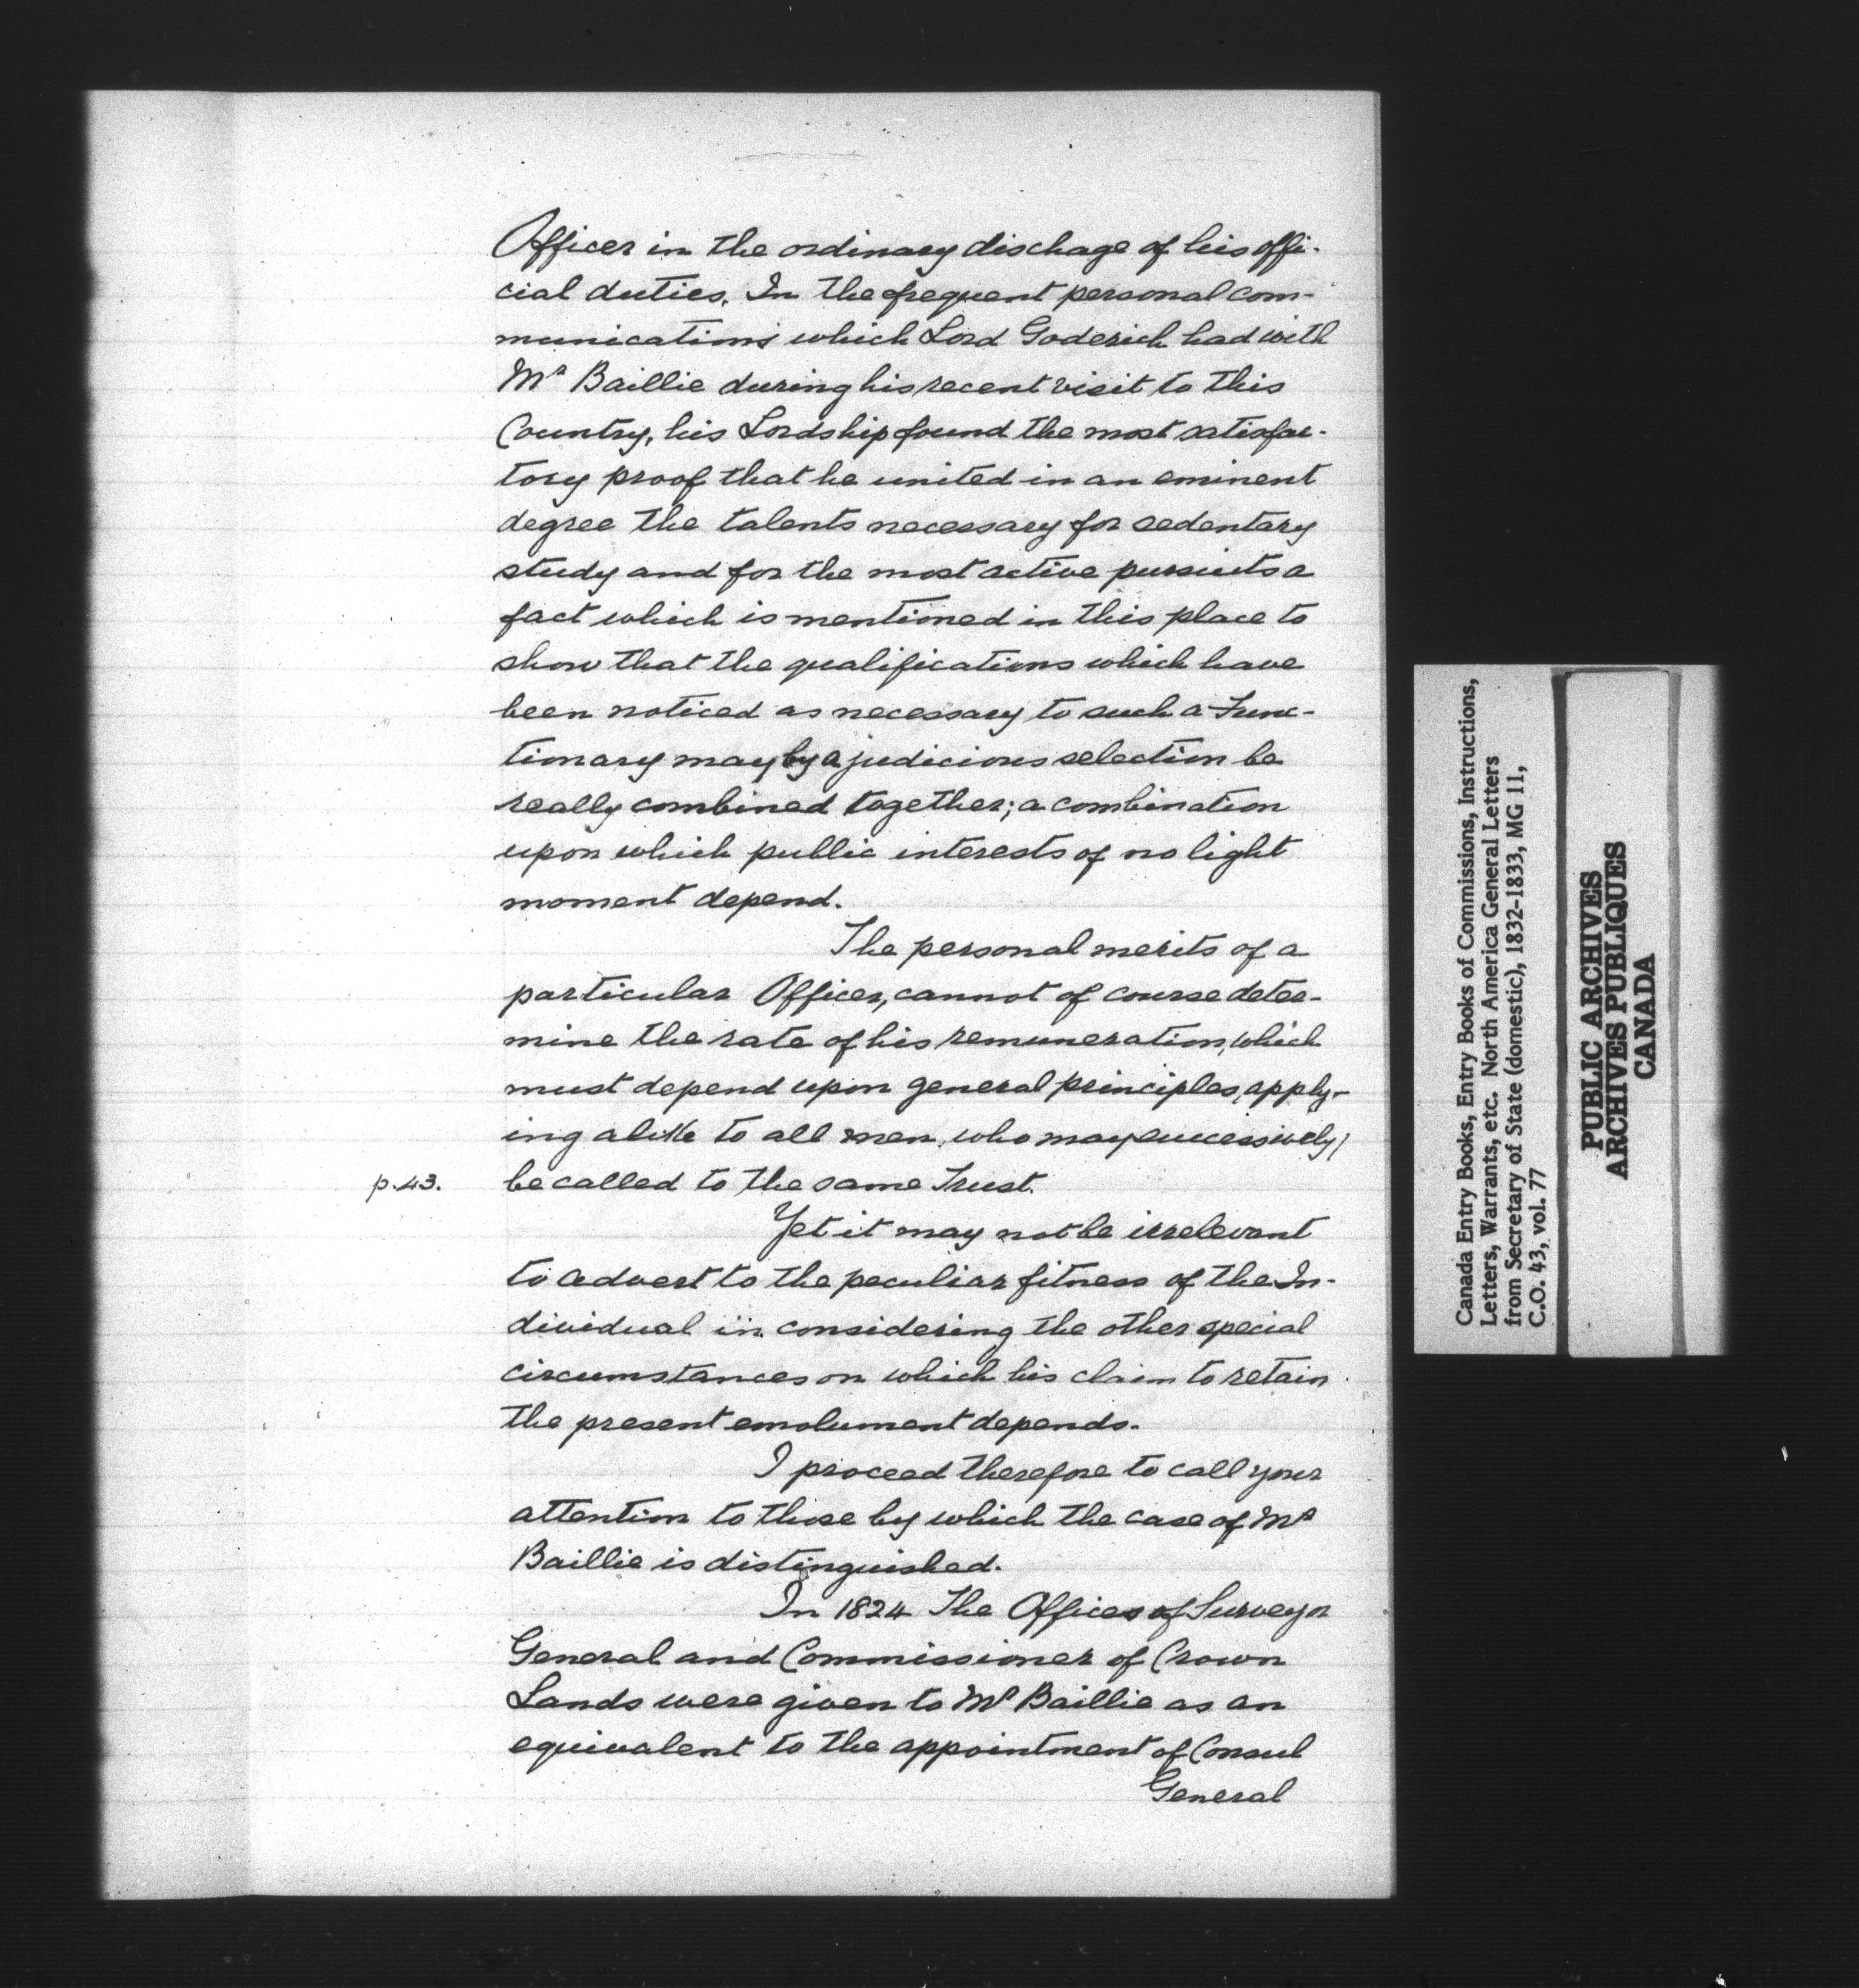 Officer in the ordinary dischage of his offi-
cial duties. In the frequent personal com-
munications which Lord Goderich had with
Mr Baillie during his recent visit to this
Country, his Lordship found the most satisfac-
tory proof that he united in an eminent
degree the talents necessary for sedentary
study and for the most active pursuits a
fact which is mentioned in this place to
show that the qualifications which have
been noticed as necessary to such a Func-
tionary may by a judicious selection be
really combined together; a combination
upon which public interests of no light
moment depend.
The personal merits of a
particular Officer, cannot of course deter-
mine the rate of his remuneration, which
must depend upon general principles, apply-
ing alike to all men, who may successively,
p.43. be called to the same Trust.
Yet it may not be irrelevant
to advert to the peculiar fitness of the In-
dividual in considering the other special
circumstances on which his claim to retain
the present emolument depends.
I proceed therefore to call your
attention to those by which the case of Mr
Baillie is distinguished.
In 1824 The Offices of Surveyor
General and Commissioner of Crown
Lands were given to Mr Baillie as an
equivalent to the appointment of Consul
General
Canada Entry Books, Entry Books of Commissions, Instructions,
Letters, Warrants, etc. North America General Letters
from Secretary of State (domestic), 1832-1833, MG 11,
C.O. 43, vol. 77
PUBLIC ARCHIVES
ARCHIVES PUBLIQUES
CANADA